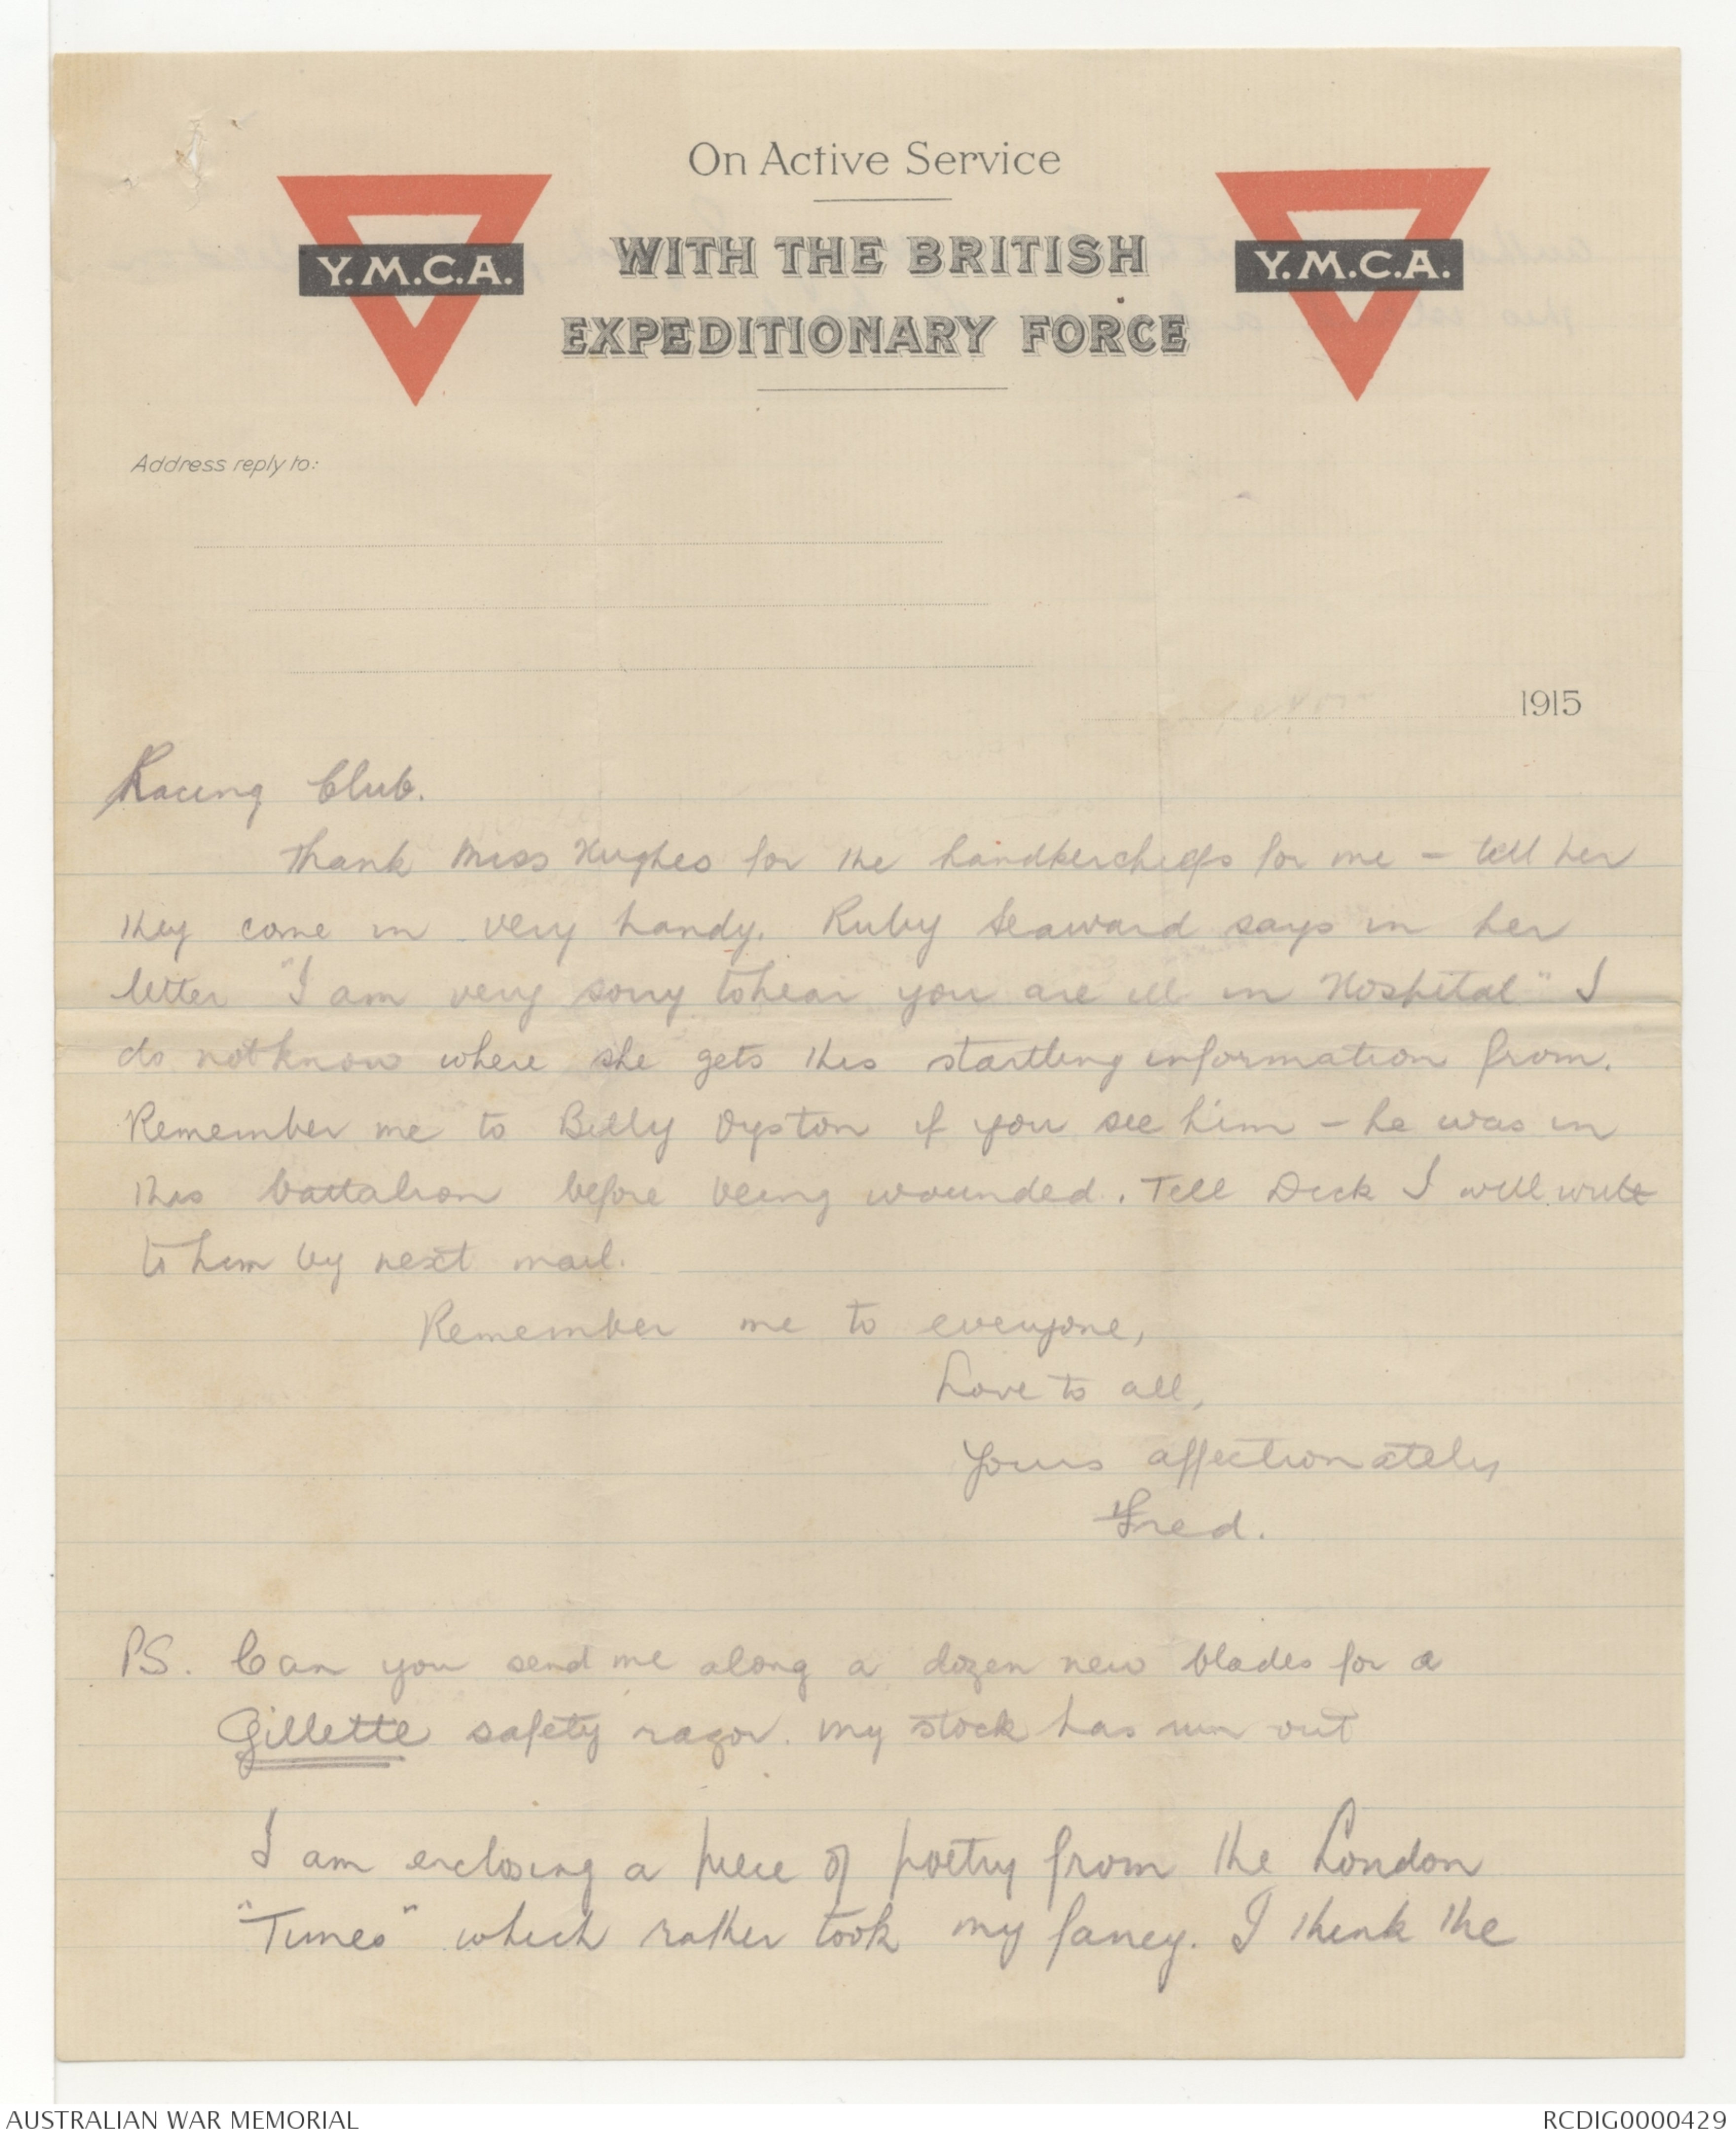 On Active Service
Y.M.C.A.
WITH THE BRITISH
EXPEDITIONARY FORCE
Y.M.C.A.
Address reply to:
1915
Racing Club.
Thank Miss Hughes for the handkercheifs for me - tell her
they come in very handy. Ruby Seaward says in her
letter "I am very sorry to hear you are ill in Hospital" I
do not know where she gets this startling information from.
Remember me to Billy Oyston if you see him - he was in
this battalion before being wounded. Tell Dick I will write
to him by next mail.
Remember me to everyone,
Love to all,
Yours affectionately
Fred.
PS. Can you send me along a dozen new blades for a
Gillette safety razor. My stock has run out
I am enclosing a piece of poetry from the London
"Times" which rather took my fancy. I think the
AUSTRALIAN WAR MEMORIAL
RCDIG0000429